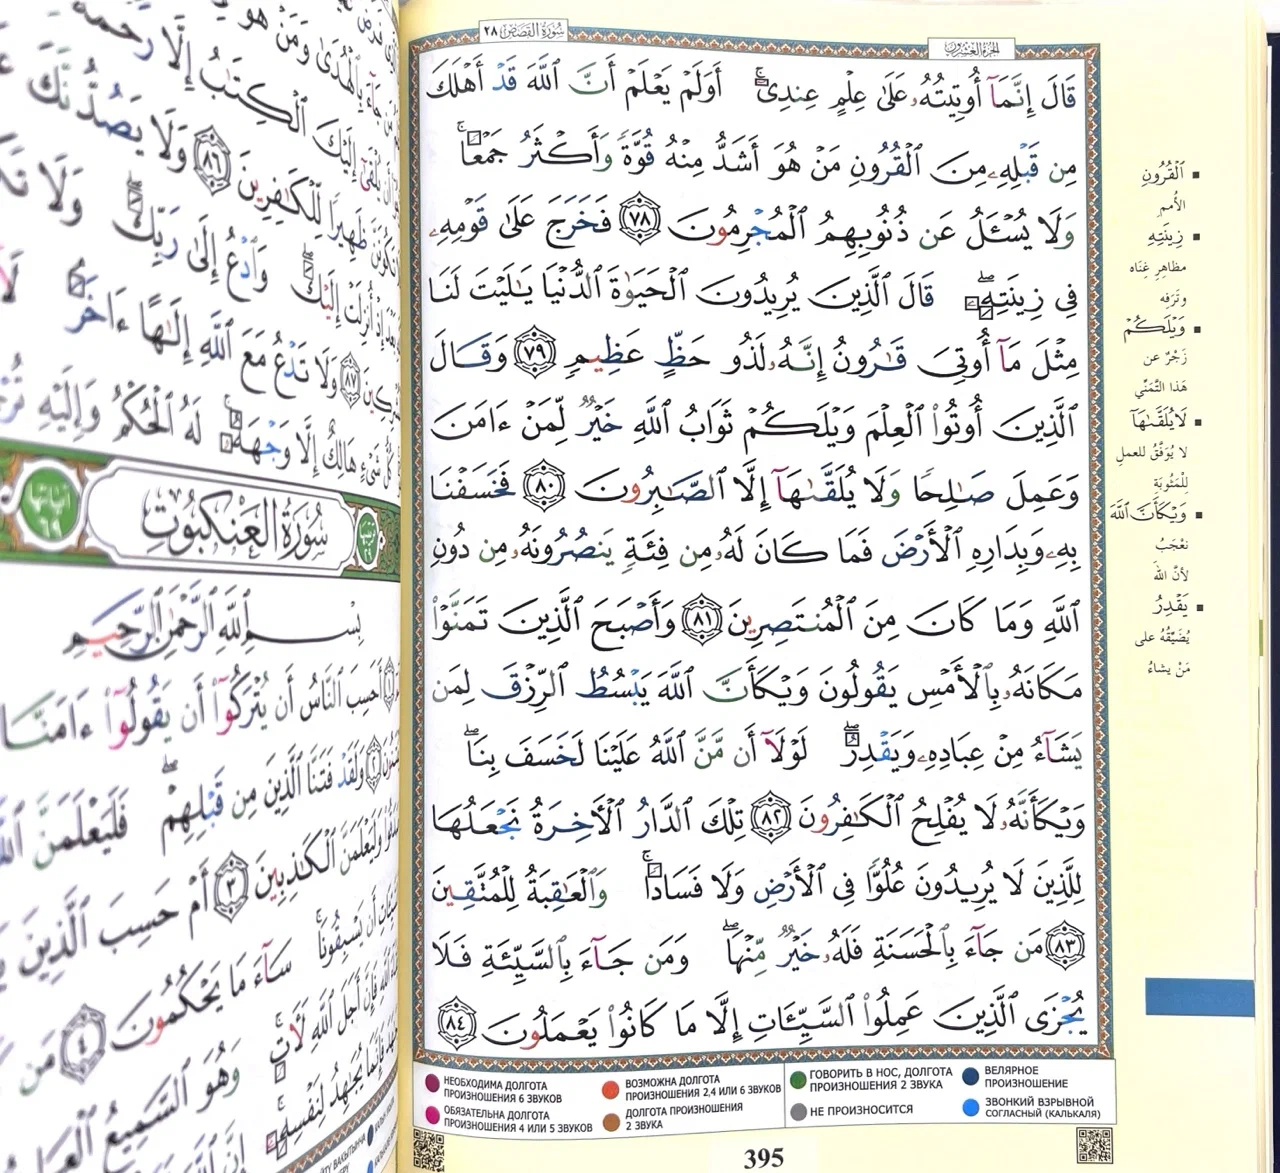 سُورَةُ القَصَصِ ٢٨
الجزء العشرون
قَالَ إِنَّمَآ أُوتِيتُهُۥ عَلَىٰ عِلْمٍ عِندِىٓ ۚ أَوَلَمْ يَعْلَمْ أَنَّ ٱللَّهَ قَدْ أَهْلَكَ
مِن قَبْلِهِۦ مِنَ ٱلْقُرُونِ مَنْ هُوَ أَشَدُّ مِنْهُ قُوَّةً وَأَكْثَرُ جَمْعًا ۚ
وَلَا يُسْـَٔلُ عَن ذُنُوبِهِمُ ٱلْمُجْرِمُونَ ٧٨ فَخَرَجَ عَلَىٰ قَوْمِهِۦ
فِى زِينَتِهِۦ ۖ قَالَ ٱلَّذِينَ يُرِيدُونَ ٱلْحَيَوٰةَ ٱلدُّنْيَا يَـٰلَيْتَ لَنَا
مِثْلَ مَآ أُوتِىَ قَـٰرُونُ إِنَّهُۥ لَذُو حَظٍّ عَظِيمٍ ٧٩ وَقَالَ
ٱلَّذِينَ أُوتُوا۟ ٱلْعِلْمَ وَيْلَكُمْ ثَوَابُ ٱللَّهِ خَيْرٌ لِّمَنْ ءَامَنَ
وَعَمِلَ صَـٰلِحًا وَلَا يُلَقَّىٰهَآ إِلَّا ٱلصَّـٰبِرُونَ ٨٠ فَخَسَفْنَا
بِهِۦ وَبِدَارِهِ ٱلْأَرْضَ فَمَا كَانَ لَهُۥ مِن فِئَةٍ يَنصُرُونَهُۥ مِن دُونِ
ٱللَّهِ وَمَا كَانَ مِنَ ٱلْمُنتَصِرِينَ ٨١ وَأَصْبَحَ ٱلَّذِينَ تَمَنَّوْا۟
مَكَانَهُۥ بِٱلْأَمْسِ يَقُولُونَ وَيْكَأَنَّ ٱللَّهَ يَبْسُطُ ٱلرِّزْقَ لِمَن
يَشَآءُ مِنْ عِبَادِهِۦ وَيَقْدِرُ ۖ لَوْلَآ أَن مَّنَّ ٱللَّهُ عَلَيْنَا لَخَسَفَ بِنَا ۖ
وَيْكَأَنَّهُۥ لَا يُفْلِحُ ٱلْكَـٰفِرُونَ ٨٢ تِلْكَ ٱلدَّارُ ٱلْـَٔاخِرَةُ نَجْعَلُهَا
لِلَّذِينَ لَا يُرِيدُونَ عُلُوًّا فِى ٱلْأَرْضِ وَلَا فَسَادًا ۚ وَٱلْعَـٰقِبَةُ لِلْمُتَّقِينَ
٨٣ مَن جَآءَ بِٱلْحَسَنَةِ فَلَهُۥ خَيْرٌ مِّنْهَا ۖ وَمَن جَآءَ بِٱلسَّيِّئَةِ فَلَا
يُجْزَى ٱلَّذِينَ عَمِلُوا۟ ٱلسَّيِّـَٔاتِ إِلَّا مَا كَانُوا۟ يَعْمَلُونَ ٨٤
ٱلْقُرُونِ
الأُممِ
زِينَتِهِ
مظاهرِ غِنَاه
وتَرَفِه
وَيْلَكُمْ
زَجْرٌ عن
هذا التَّمَنِّي
لَا يُلَقَّىٰهَآ
لا يُوَفَّقُ للعملِ
لِلْمَثُوبَةِ
وَيْكَأَنَّ ٱللَّهَ
نعْجَبُ
لأنَّ الله
يَقْدِرُ
يُضَيِّقُهُ على
مَنْ يشاءُ
НЕОБХОДИМА ДОЛГОТА ПРОИЗНОШЕНИЯ 6 ЗВУКОВ
ОБЯЗАТЕЛЬНА ДОЛГОТА ПРОИЗНОШЕНИЯ 4 ИЛИ 5 ЗВУКОВ
ВОЗМОЖНА ДОЛГОТА ПРОИЗНОШЕНИЯ 2,4 ИЛИ 6 ЗВУКОВ
ДОЛГОТА ПРОИЗНОШЕНИЯ 2 ЗВУКА
ГОВОРИТЬ В НОС, ДОЛГОТА ПРОИЗНОШЕНИЯ 2 ЗВУКА
НЕ ПРОИЗНОСИТСЯ
ВЕЛЯРНОЕ ПРОИЗНОШЕНИЕ
ЗВОНКИЙ ВЗРЫВНОЙ СОГЛАСНЫЙ (КАЛЬКАЛЯ)
395
إِلَيْكَ ٱلْكِتَـٰبُ إِلَّا رَحْمَةً
ظَهِيرًا لِّلْكَـٰفِرِينَ ٨٦ وَلَا يَصُدُّنَّكَ
أُنزِلَتْ إِلَيْكَ ۖ وَٱدْعُ إِلَىٰ رَبِّكَ ۖ وَلَا
٨٧ وَلَا تَدْعُ مَعَ ٱللَّهِ إِلَـٰهًا ءَاخَرَ ۘ لَآ
هَالِكٌ إِلَّا وَجْهَهُۥ ۚ لَهُ ٱلْحُكْمُ وَإِلَيْهِ
سُورَةُ العَنكَبُوتِ
بِسْمِ ٱللَّهِ ٱلرَّحْمَـٰنِ ٱلرَّحِيمِ
أَحَسِبَ ٱلنَّاسُ أَن يُتْرَكُوٓا۟ أَن يَقُولُوٓا۟ ءَامَنَّا
٢ وَلَقَدْ فَتَنَّا ٱلَّذِينَ مِن قَبْلِهِمْ ۖ فَلَيَعْلَمَنَّ
وَلَيَعْلَمَنَّ ٱلْكَـٰذِبِينَ ٣ أَمْ حَسِبَ ٱلَّذِينَ
أَن يَسْبِقُونَا ۚ سَآءَ مَا يَحْكُمُونَ ٤ مَن
فَإِنَّ أَجَلَ ٱللَّهِ لَـَٔاتٍ ۚ وَهُوَ ٱلسَّمِيعُ
يُجَـٰهِدُ لِنَفْسِهِۦٓ ۚ إِنَّ ٱللَّهَ